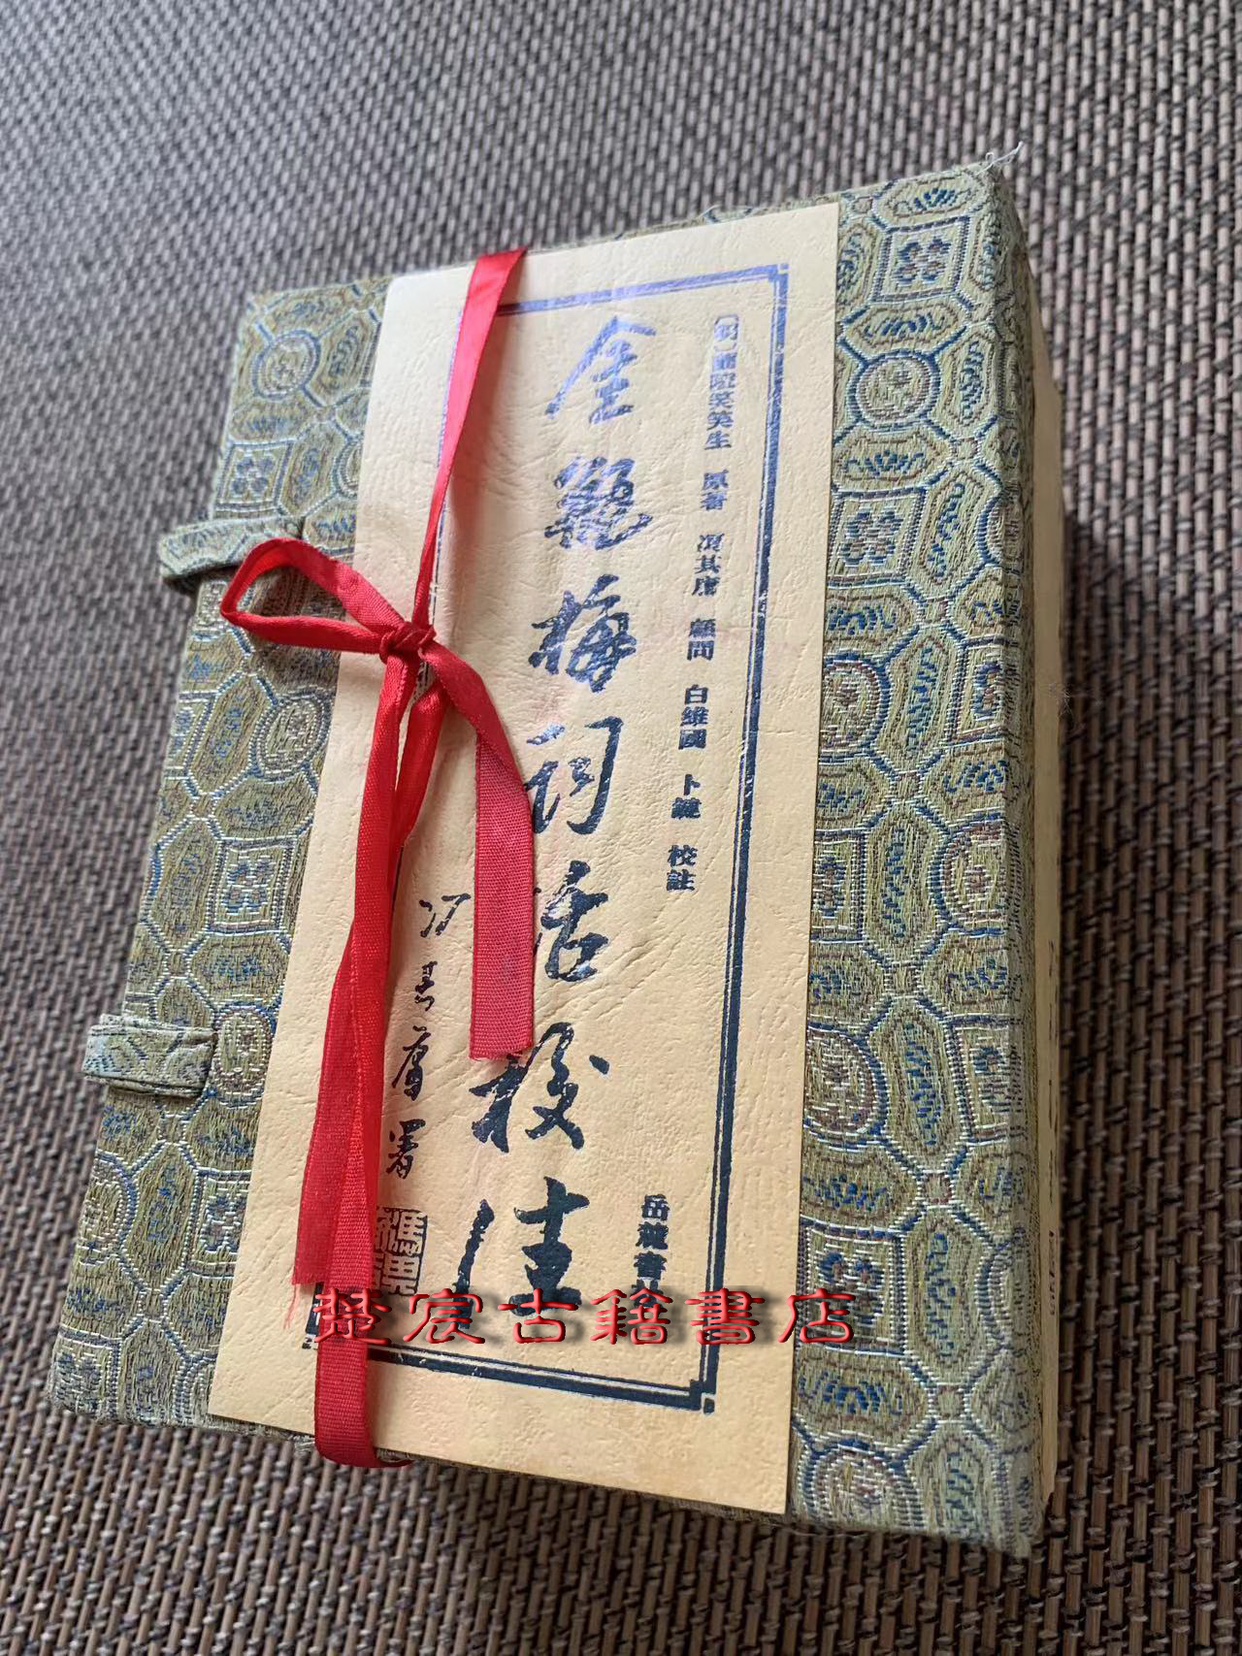 〔明〕蘭陵笑笑生 原著 馮其庸 顧問 白維國 卜鍵 校註
金瓶梅词话校注
岳麓書社
冯其庸署
楚宸古籍書店